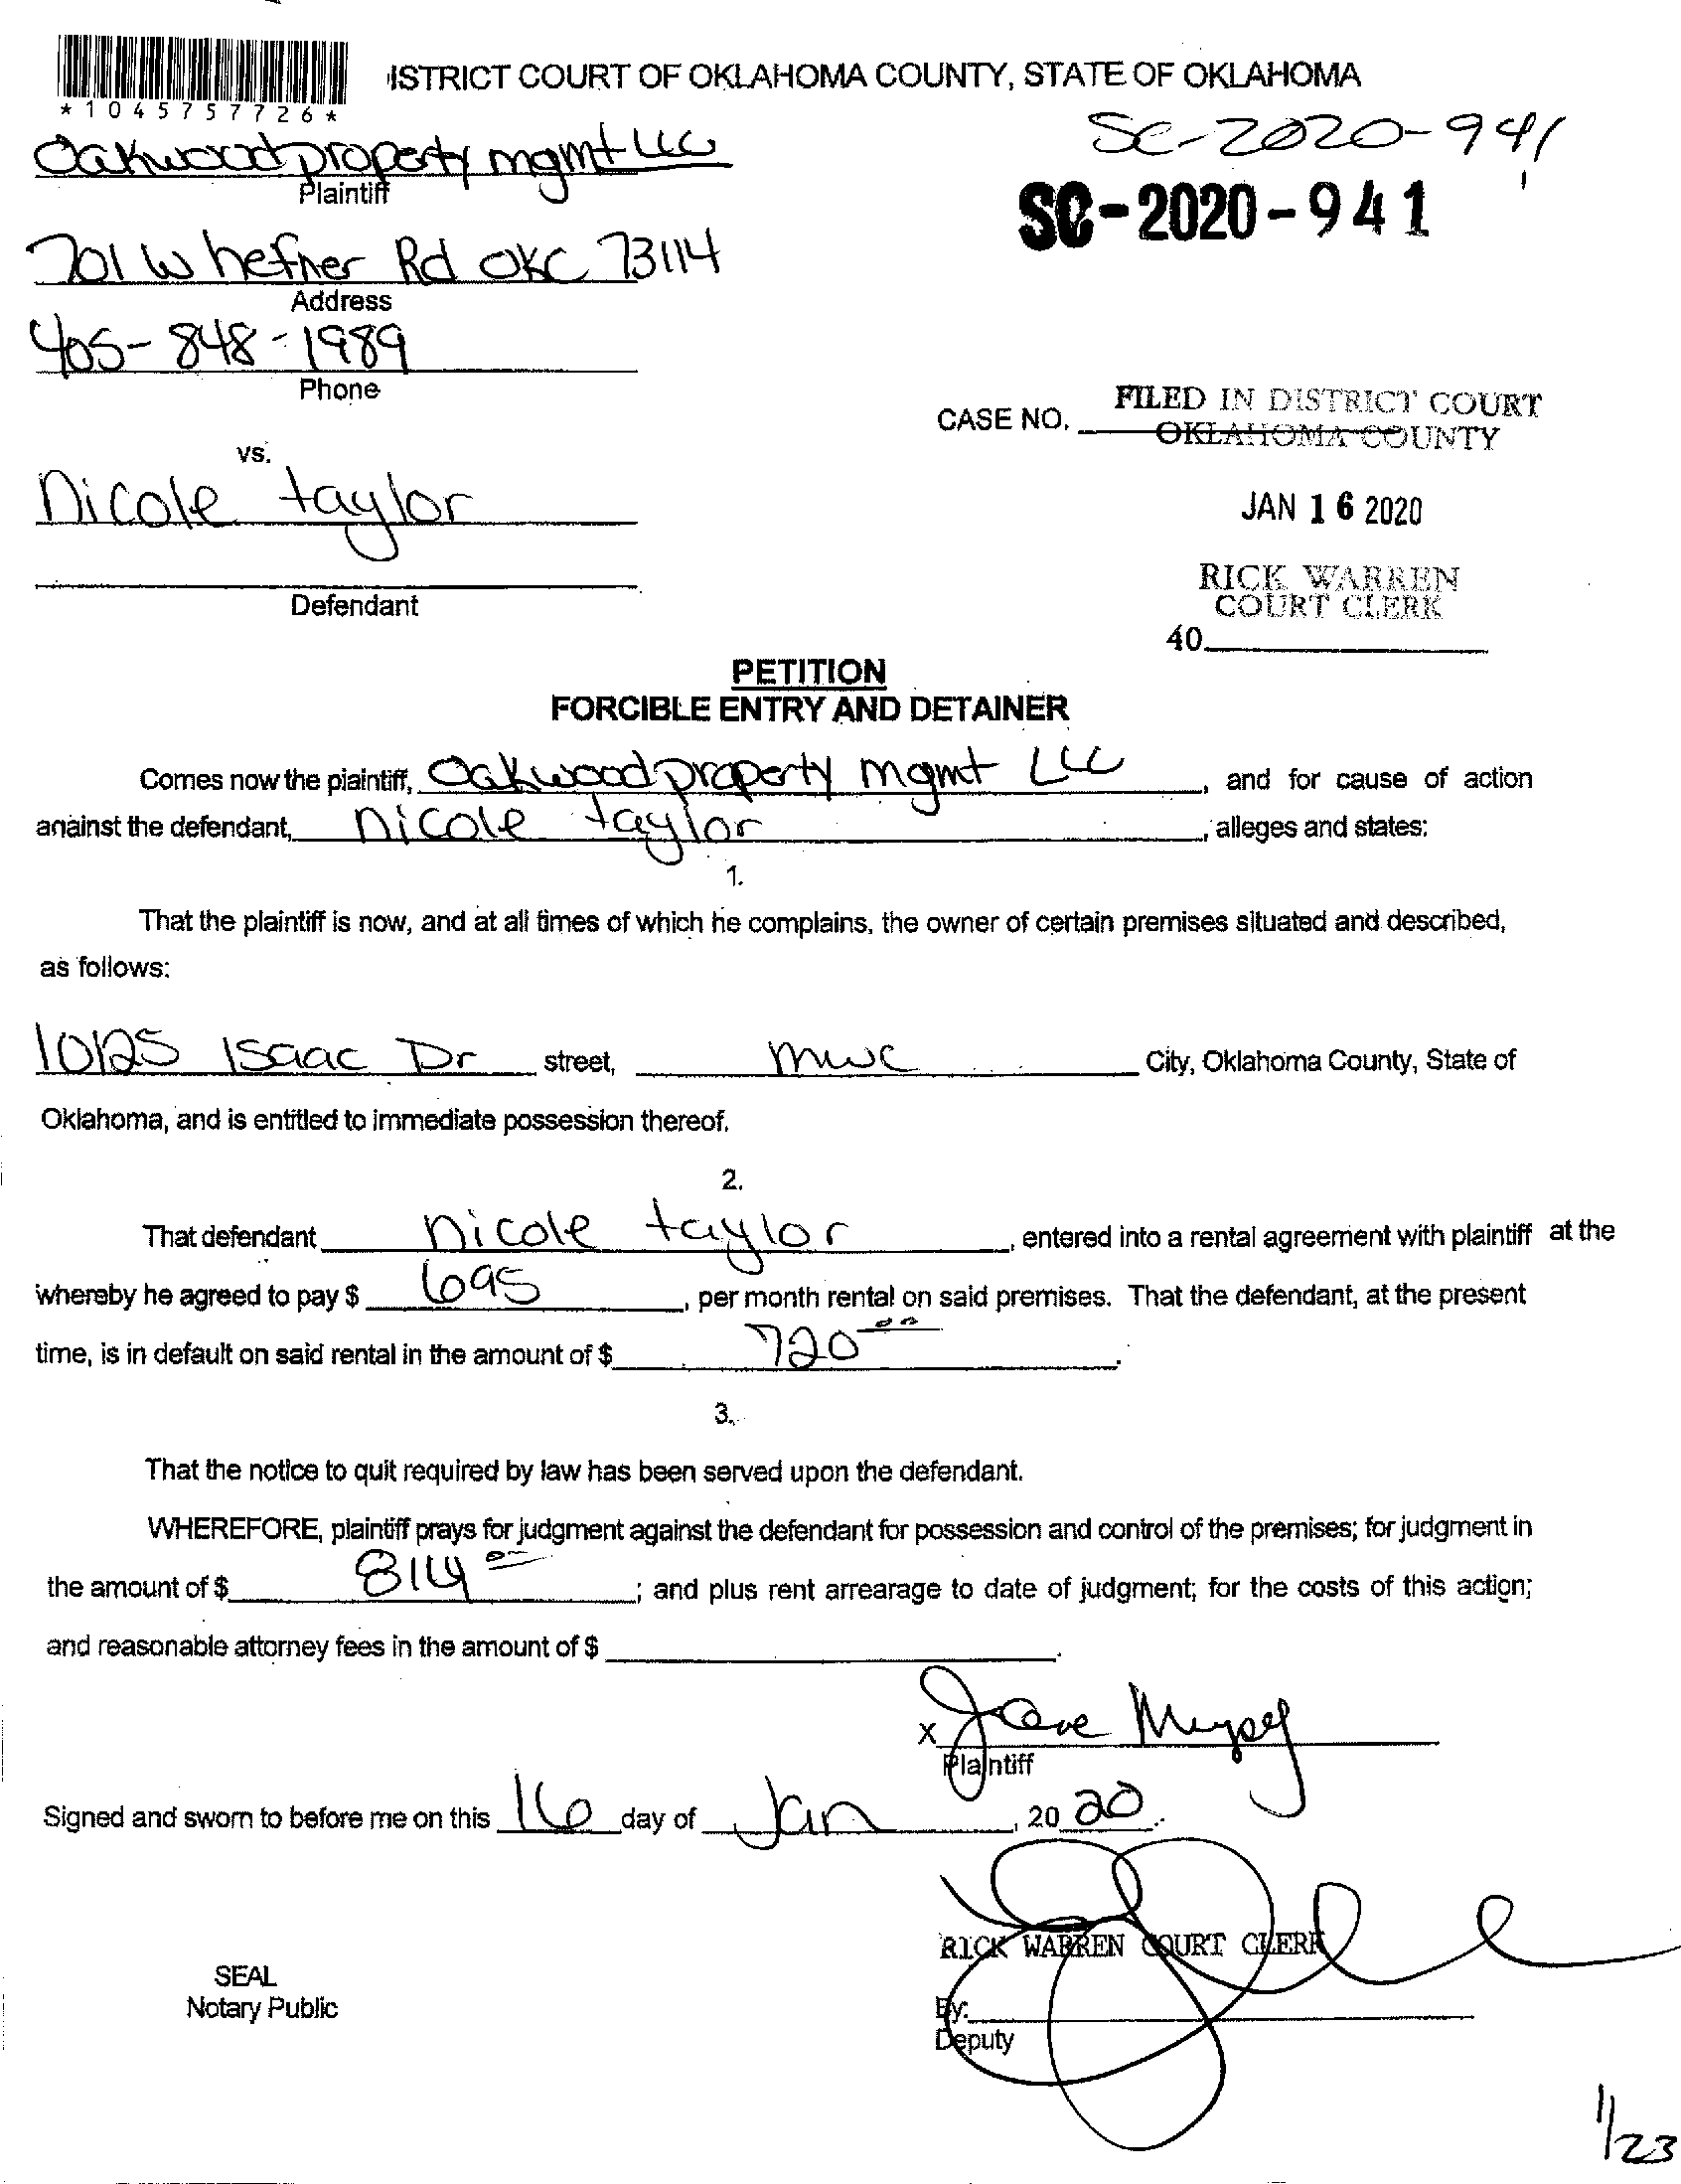 ISTRICT COURT OF OKLAHOMA COUNTY, STATE OF OKLAHOMA
*1045757726*
SC-2020-941
Oakwood property mgmt LLC
Plaintiff
SC-2020-941
701 W hefner Rd OKC 73114
Address
405-848-1989
Phone
CASE NO.
FILED IN DISTRICT COURT
OKLAHOMA COUNTY
vs.
Nicole taylor
JAN 16 2020
Defendant
RICK WARREN
COURT CLERK
40
PETITION
FORCIBLE ENTRY AND DETAINER
Comes now the plaintiff, Oakwood property mgmt LLC, and for cause of action
against the defendant, nicole taylor, alleges and states:
1.
That the plaintiff is now, and at all times of which he complains, the owner of certain premises situated and described,
as follows:
10125 Isaac Dr street, mwc City, Oklahoma County, State of
Oklahoma, and is entitled to immediate possession thereof.
2.
That defendant nicole taylor, entered into a rental agreement with plaintiff at the
whereby he agreed to pay $ 695, per month rental on said premises. That the defendant, at the present
time, is in default on said rental in the amount of $ 720 00.
3.
That the notice to quit required by law has been served upon the defendant.
WHEREFORE, plaintiff prays for judgment against the defendant for possession and control of the premises; for judgment in
the amount of $ 814 00; and plus rent arrearage to date of judgment; for the costs of this action;
and reasonable attorney fees in the amount of $ .
X
Plaintiff
Signed and sworn to before me on this 16 day of Jan, 20 20.
RICK WARREN COURT CLERK
SEAL
Notary Public
By:
Deputy
1/23